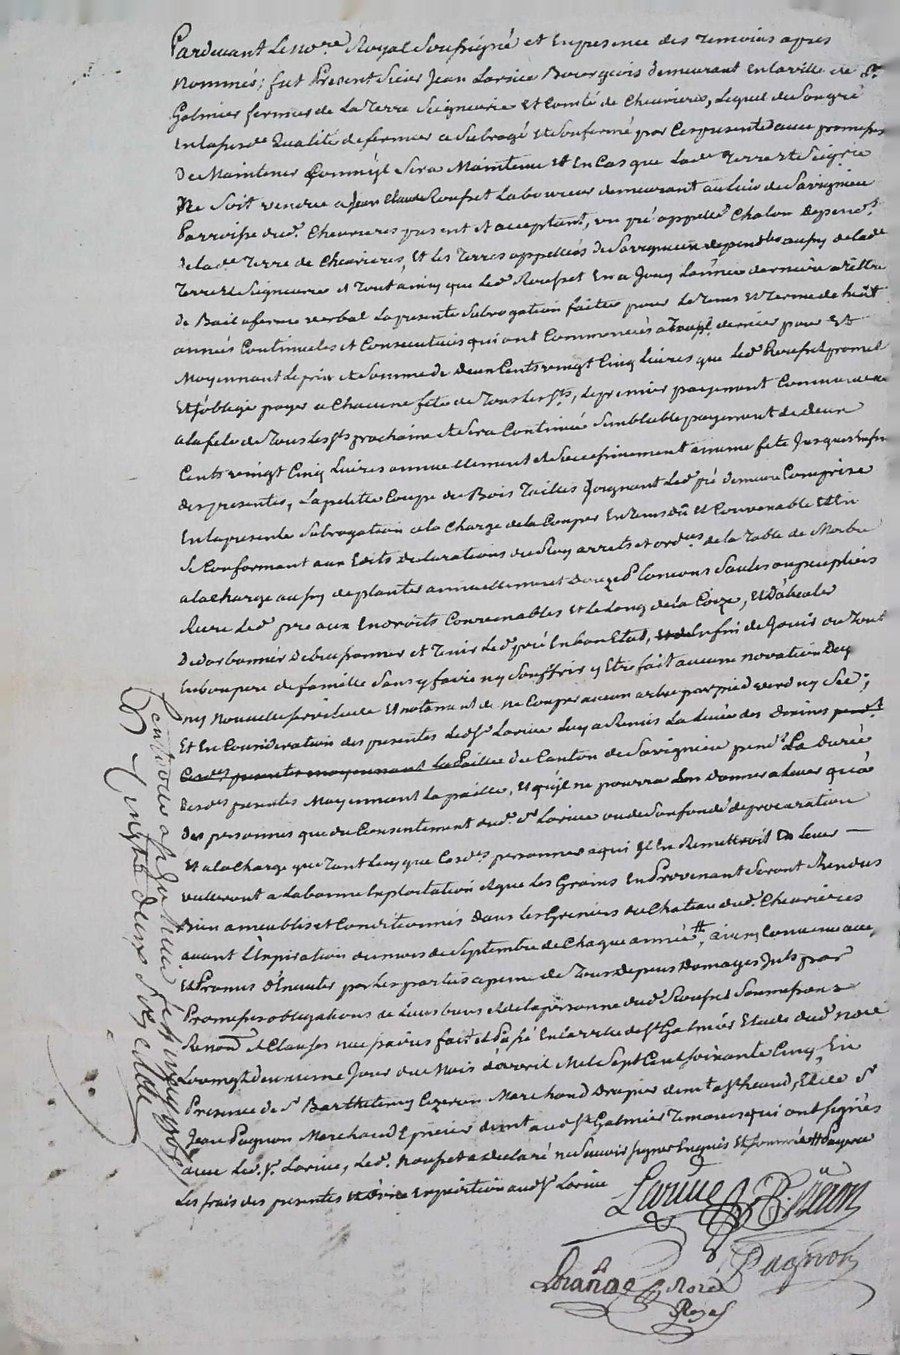 Pardevant Le no.re Royal Soussigné et En presence des temoins apres
nommés; fut Present Sieur Jean Larive Bourgeois demeurant En la ville de St.
Galmier fermier de La Terre Seigneurie Et Comté de Chevrieres, Lequel de Son gré
En la susd.e Qualité de fermier a Subrogé Et Sousfermé par Ces presentes avec promesses
de Maintenir Comme jl Sera Maintenu Et En Cas que La d.e Terre et Seig.rie
Ne Soit vendue a Jean Claude Rousset Laboureur demeurant au Lieu de Savignieu
Parroisse dud. Chevrieres present et acceptant, un pré appellé Chalon depend.t
de la d.e Terre de Chevrieres, Et les Terres appellées de Savignieu dependtes aussy de la d.e
Terre Et Seigneurie et Tout ainsy que Led. Rousset En a Jouy L'année derniere a Tittre
de Bail a ferme verbal La presente Subrogation faitte pour Le Tems Et Terme de huit
années Continuelles et Consecutives qui ont Commencées a dernier pour Et
Moyennant Le prix et Somme de deux Cents vingt Cinq Livres que Led. Rousset promet
Et s'oblige payer a Chacune fete de Tous Les Sts, Le premier payement Commencera
a la fete de Tous Les Sts prochaine et Sera Continué Semblable payement de deux
Cents vingt Cinq Livres annuellement et Successivement a meme fete Jusques a fin
des presentes, La petite Coupe de Bois Taillis Joignant Led. pré demeure Comprise
En la presente Subrogation a la Charge de la Couper En Tems dû et Convenable Et En
Se Conformant aux Edits declarations du Roy arrets et ord.es de la Table de Marbre
a la charge aussy de planter annuellement douze Plançons Saules ou peupliers
dans Led. pré aux Endroits Convenables Et Le Long de la Coize, Et
Et Tenir Led. pré En bon Etat, En fin de Jouir du Tout
En bon pere de famille Sans y faire ny Souffrir y Etre fait aucune novation
ny Nouvelle Servitude Et notament de ne Couper aucun arbre par pied verd ny Sec;
Et En Consideration des presentes Led. Sr Larive Luy a Remis La Levée des Dixmes
du Canton de Savignieu pend.t La durée
des d. presentes Moyennant La paille, Et qu'jl ne pourra donner a Lever qu'a
des personnes que du Consentement dud. Sr Larive ou de Son fondé de procuration
Et a la Charge que Tant Luy que Les d.es personnes a qui jl En Remettroit La Levée
veilleront a La bonne Exploitation Et que Les Grains En Provenant Seront Rendus
Bien et Conditionnés dans Les Greniers du Chateau dud. Chevrieres
avant L'Expiration du mois de Septembre de Chaque année #, ainsy Convenu accepté
Et Promis d'Executer par Les parties a peine de Tous depens Domages Jnts par
Promesses obligations de Leurs biens et de la personne dud. Rousset Soumissions
Renon.s et Clauses necessaires fait et Passé En la ville de St Galmier Etude dud. no.re
Le vingt deuxieme Jour du Mois d'avril Mil Sept Cent Soixante Cinq, En
Presence de Sr Barthelemy Marchand Drapier demt a St heand, Et de Sr
Jean Pagnon Marchand Epicier demt aud. St Galmier Temoins qui ont Signés
avec Led. Sr Larive, Led. Rousset a declaré ne Sçavoir Signer Enquis Et Sommé # Payera
Les frais des presentes Expedition aud. Sr Larive
Larive
Pagnon
No.re
Royal